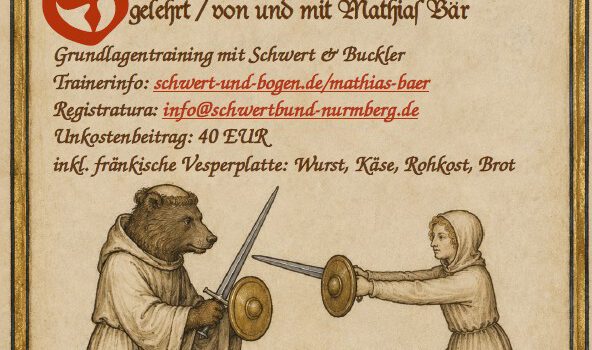 gelehrt / von und mit Mathias Bär
Grundlagentraining mit Schwert & Buckler
Trainerinfo: schwert-und-bogen.de/mathias-baer
Registratura: info@schwertbund-nurmberg.de
Unkostenbeitrag: 40 EUR
inkl. fränkische Vesperplatte: Wurst, Käse, Rohkost, Brot